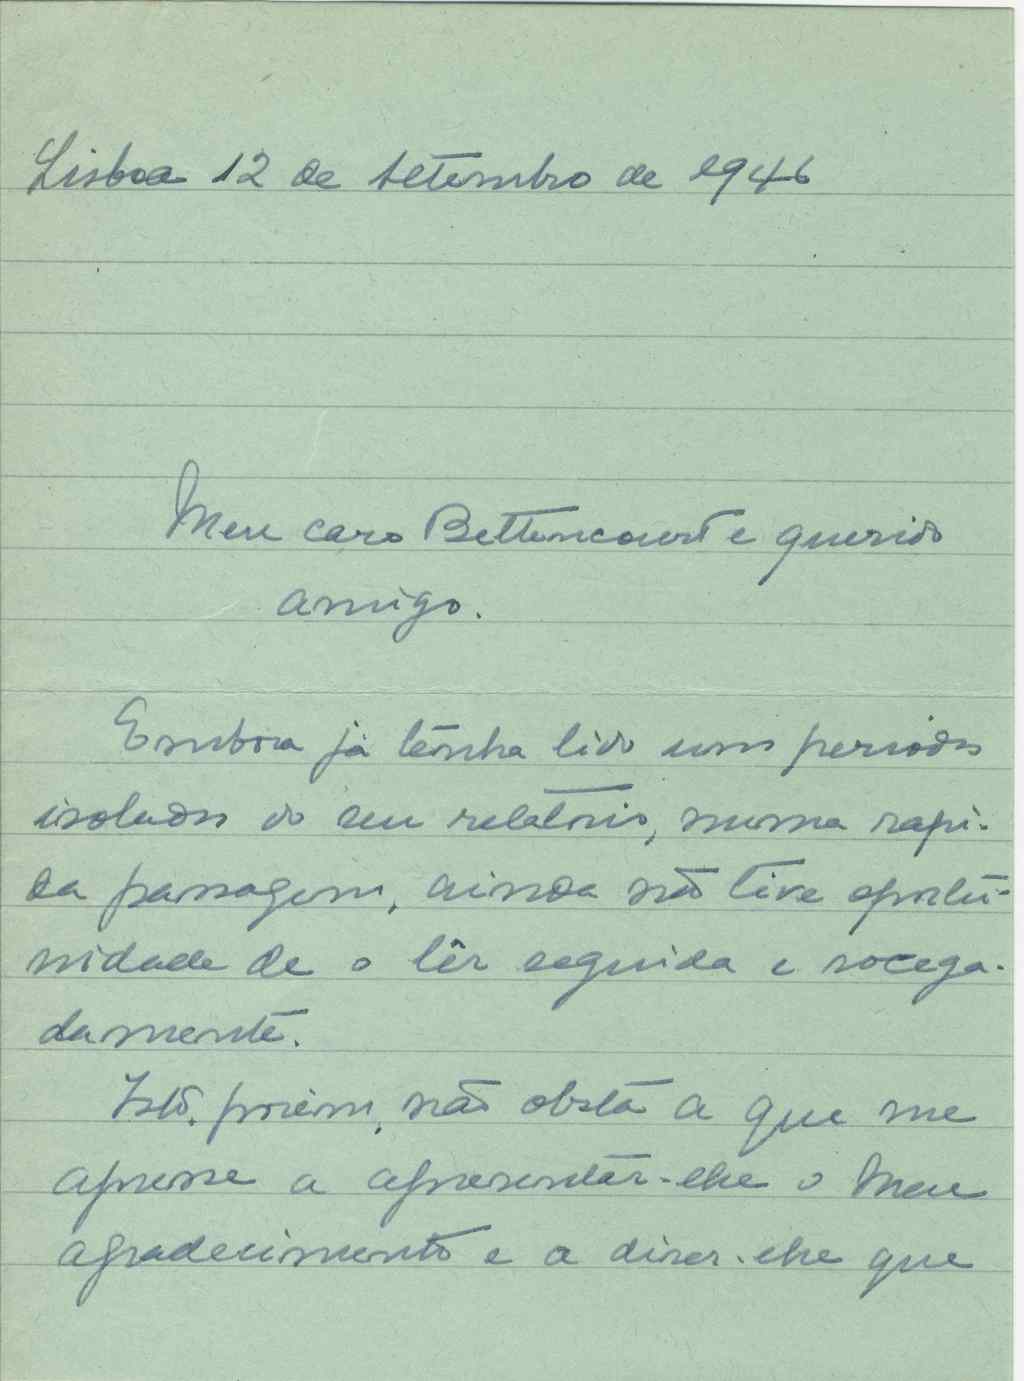 Lisboa 12 de setembro de 1946
Meu caro Bettencourt e querido
amigo.
Embora já tenha lido uns periodos
isolados do seu relatório, numa rapi-
da passagem, ainda não tive oportu-
nidade de o lêr seguida e socega-
damente.
Isto, porém, não obsta a que me
apresse a apresentar-lhe o meu
agradecimento e a dizer-lhe que